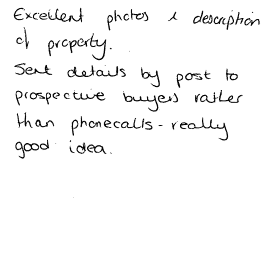 Excellent photos & description
of property.
Sent details by post to
prospective buyers rather
than phonecalls - really
good idea.